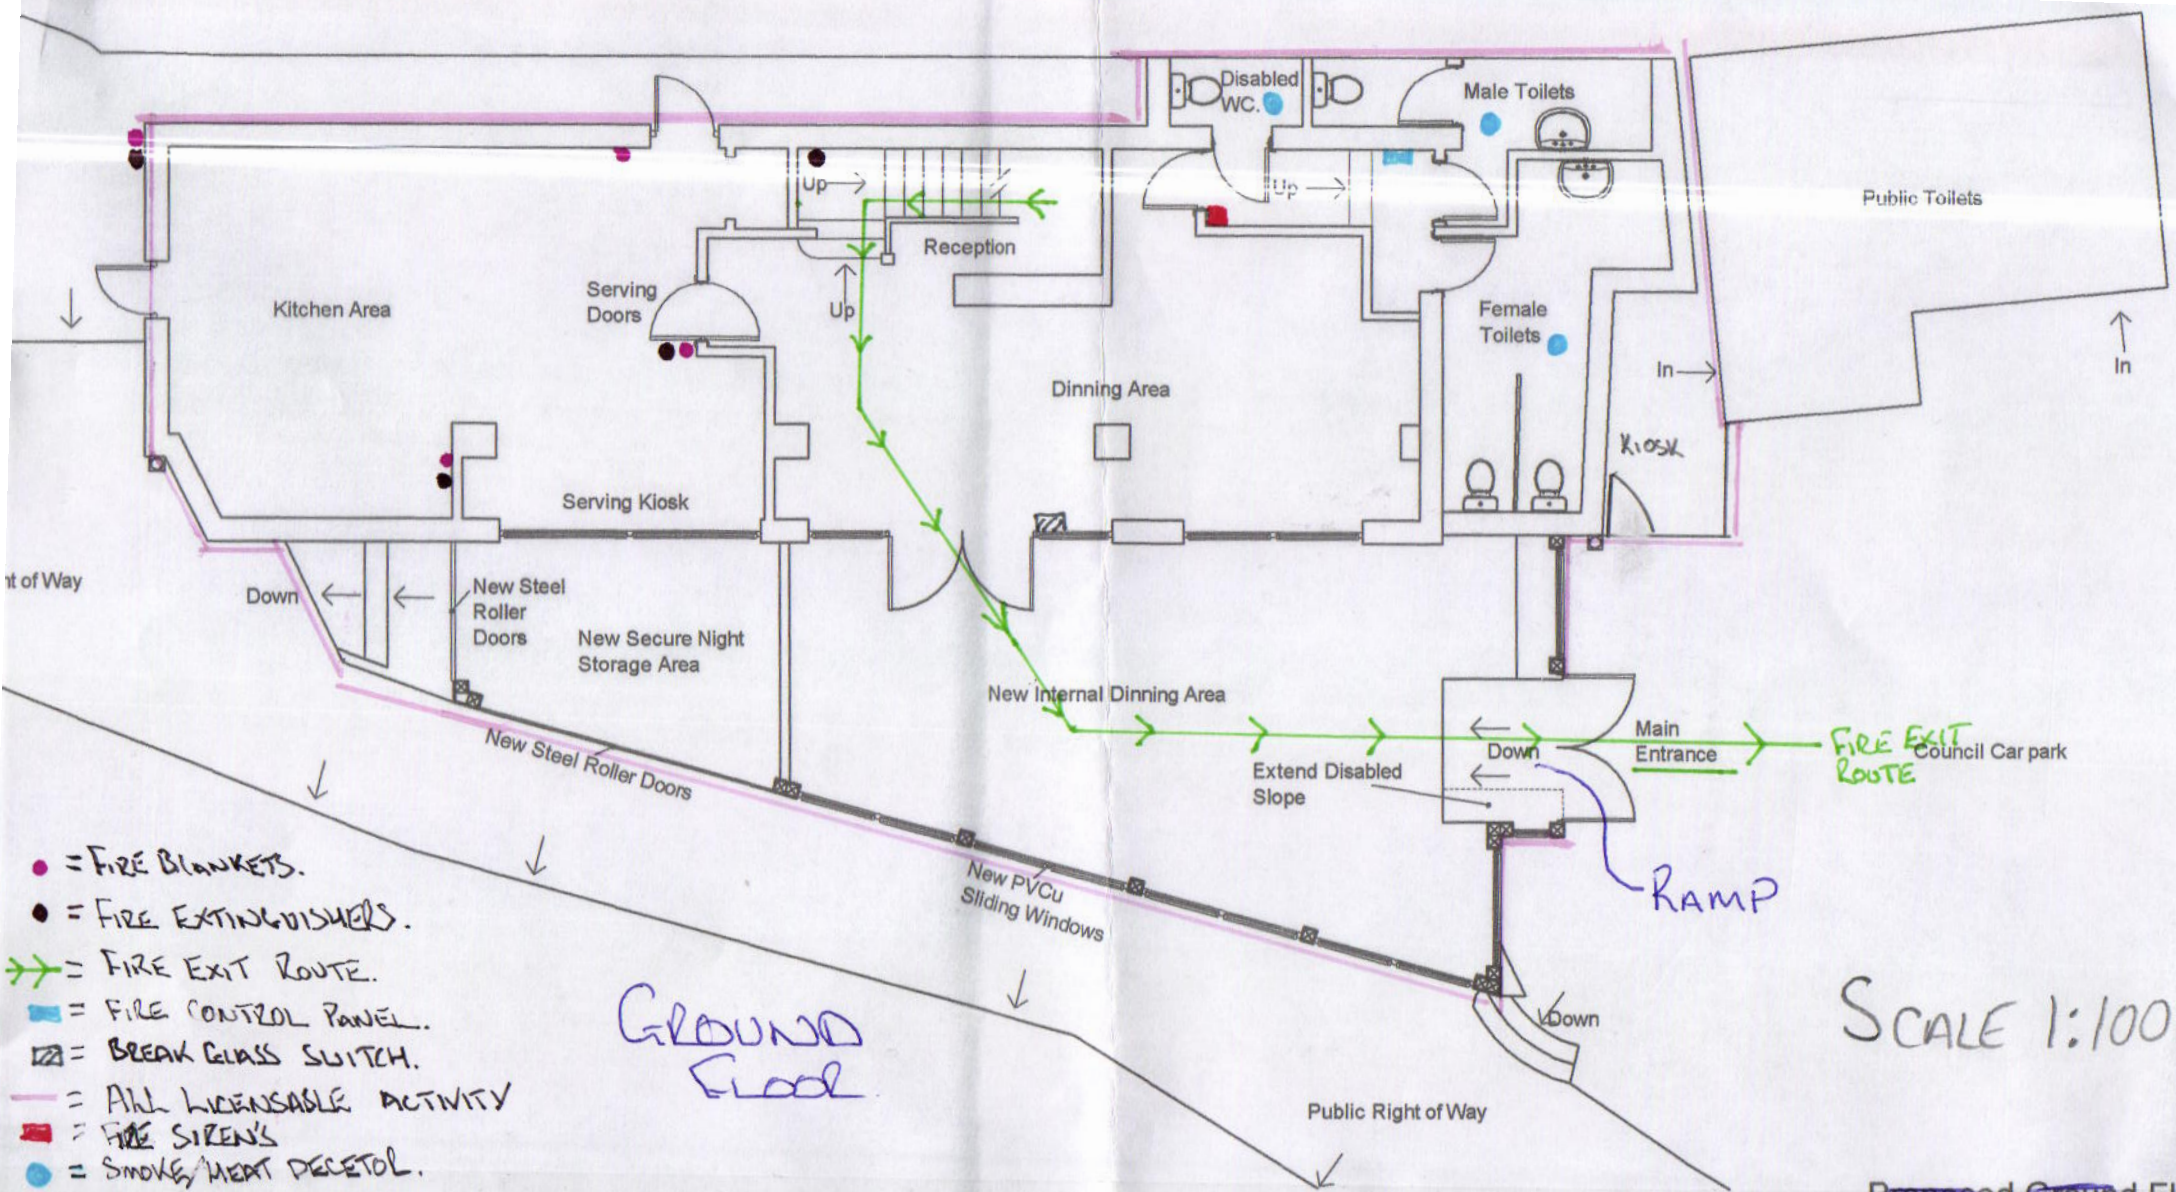 Disabled
WC.
Male Toilets
Up
Up
Public Toilets
Reception
Kitchen Area
Serving
Doors
Up
Female
Toilets
In
In
Dinning Area
KIOSK
Serving Kiosk
nt of Way
Down
New Steel
Roller
Doors
New Secure Night
Storage Area
New Internal Dinning Area
Main
Entrance
Down
FIRE EXIT
ROUTE
Council Car park
Extend Disabled
Slope
New Steel Roller Doors
New PVCu
Sliding Windows
RAMP
= FIRE BLANKETS.
= FIRE EXTINGUISHERS.
= FIRE EXIT ROUTE.
= FIRE CONTROL PANEL.
= BREAK GLASS SWITCH.
= ALL LICENSABLE ACTIVITY
= FIRE SIREN'S
= SMOKE/HEAT DECETOR.
GROUND
FLOOR
Down
SCALE 1:100
Public Right of Way